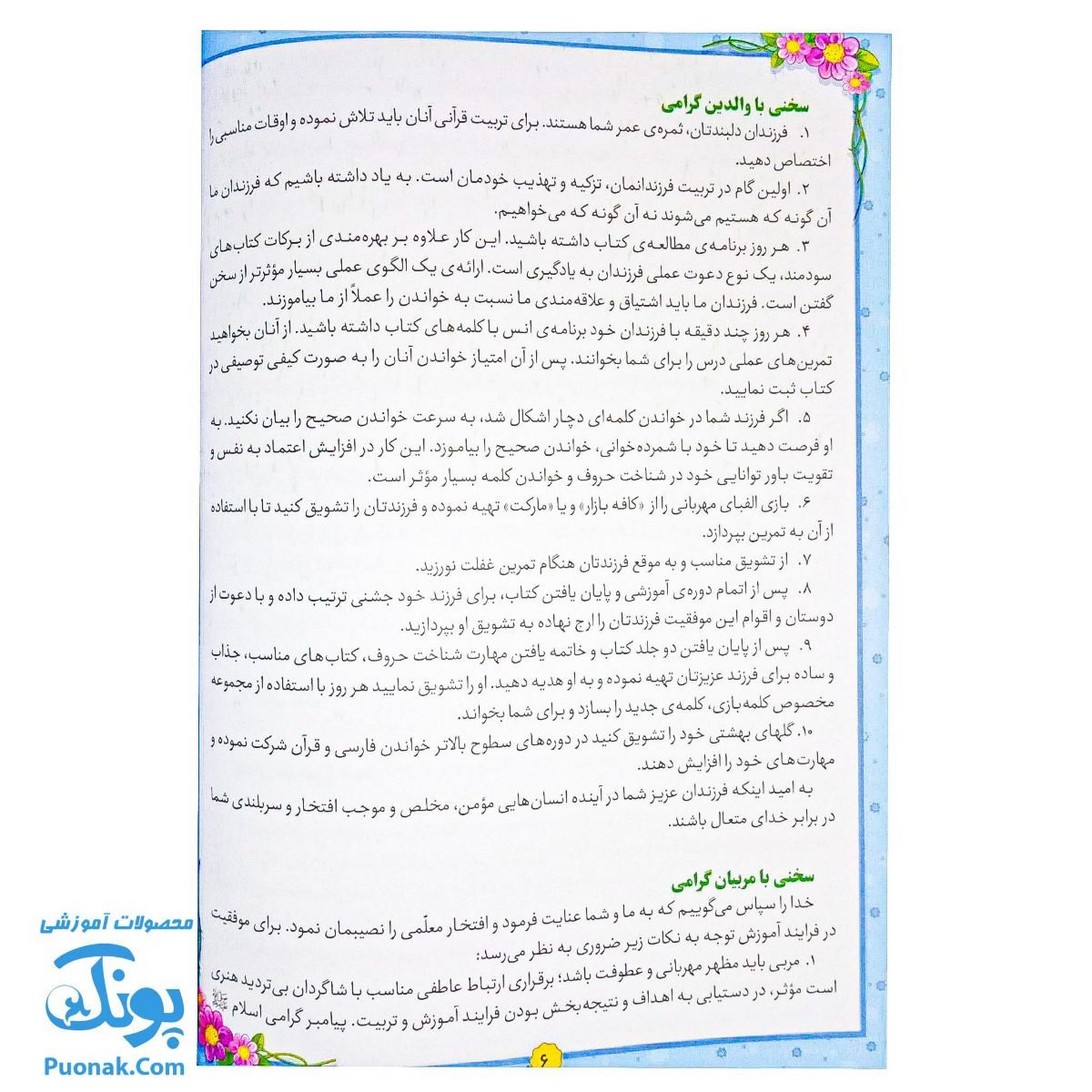 سخنی با والدین گرامی
۱. فرزندان دلبندتان، ثمره‌ی عمر شما هستند. برای تربیت قرآنی آنان باید تلاش نموده و اوقات مناسبی را
اختصاص دهید.
۲. اولین گام در تربیت فرزندانمان، تزکیه و تهذیب خودمان است. به یاد داشته باشیم که فرزندان ما
آن گونه که هستیم می‌شوند نه آن گونه که می‌خواهیم.
۳. هر روز برنامه‌ی مطالعه‌ی کتاب داشته باشید. این کار علاوه بر بهره‌مندی از برکات کتاب‌های
سودمند، یک نوع دعوت عملی فرزندان به یادگیری است. ارائه‌ی یک الگوی عملی بسیار مؤثرتر از سخن
گفتن است. فرزندان ما باید اشتیاق و علاقه‌مندی ما نسبت به خواندن را عملاً از ما بیاموزند.
۴. هر روز چند دقیقه با فرزندان خود برنامه‌ی انس با کلمه‌های کتاب داشته باشید. از آنان بخواهید
تمرین‌های عملی درس را برای شما بخوانند. پس از آن امتیاز خواندن آنان را به صورت کیفی توصیفی در
کتاب ثبت نمایید.
۵. اگر فرزند شما در خواندن کلمه‌ای دچار اشکال شد، به سرعت خواندن صحیح را بیان نکنید. به
او فرصت دهید تا خود با شمرده‌خوانی، خواندن صحیح را بیاموزد. این کار در افزایش اعتماد به نفس و
تقویت باور توانایی خود در شناخت حروف و خواندن کلمه بسیار مؤثر است.
۶. بازی الفبای مهربانی را از «کافه بازار» و یا «مارکت» تهیه نموده و فرزندتان را تشویق کنید تا با استفاده
از آن به تمرین بپردازد.
۷. از تشویق مناسب و به موقع فرزندتان هنگام تمرین غفلت نورزید.
۸. پس از اتمام دوره‌ی آموزشی و پایان یافتن کتاب، برای فرزند خود جشنی ترتیب داده و با دعوت از
دوستان و اقوام این موفقیت فرزندتان را ارج نهاده به تشویق او بپردازید.
۹. پس از پایان یافتن دو جلد کتاب و خاتمه یافتن مهارت شناخت حروف، کتاب‌های مناسب، جذاب
و ساده برای فرزند عزیزتان تهیه نموده و به او هدیه دهید. او را تشویق نمایید هر روز با استفاده از مجموعه
مخصوص کلمه‌بازی، کلمه‌ی جدید را بسازد و برای شما بخواند.
۱۰. گلهای بهشتی خود را تشویق کنید در دوره‌های سطوح بالاتر خواندن فارسی و قرآن شرکت نموده و
مهارت‌های خود را افزایش دهند.
به امید اینکه فرزندان عزیز شما در آینده انسان‌هایی مؤمن، مخلص و موجب افتخار و سربلندی شما
در برابر خدای متعال باشند.
سخنی با مربیان گرامی
خدا را سپاس می‌گوییم که به ما و شما عنایت فرمود و افتخار معلّمی را نصیبمان نمود. برای موفقیت
در فرایند آموزش توجه به نکات زیر ضروری به نظر می‌رسد:
۱. مربی باید مظهر مهربانی و عطوفت باشد؛ برقراری ارتباط عاطفی مناسب با شاگردان بی‌تردید هنری
است مؤثر، در دستیابی به اهداف و نتیجه‌بخش بودن فرایند آموزش و تربیت. پیامبر گرامی اسلام
۶
محصولات آموزشی
پونک
Puonak.Com